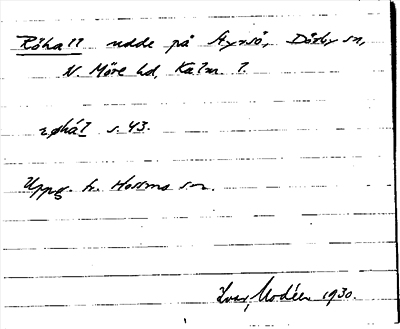 Röhall udde på Styrsö, Dörby sn,
N. Möre hd, Kalm. l.
røhál s. 43.
Uppg. h. Hossmo sn.
Ivar Modéer 1930.